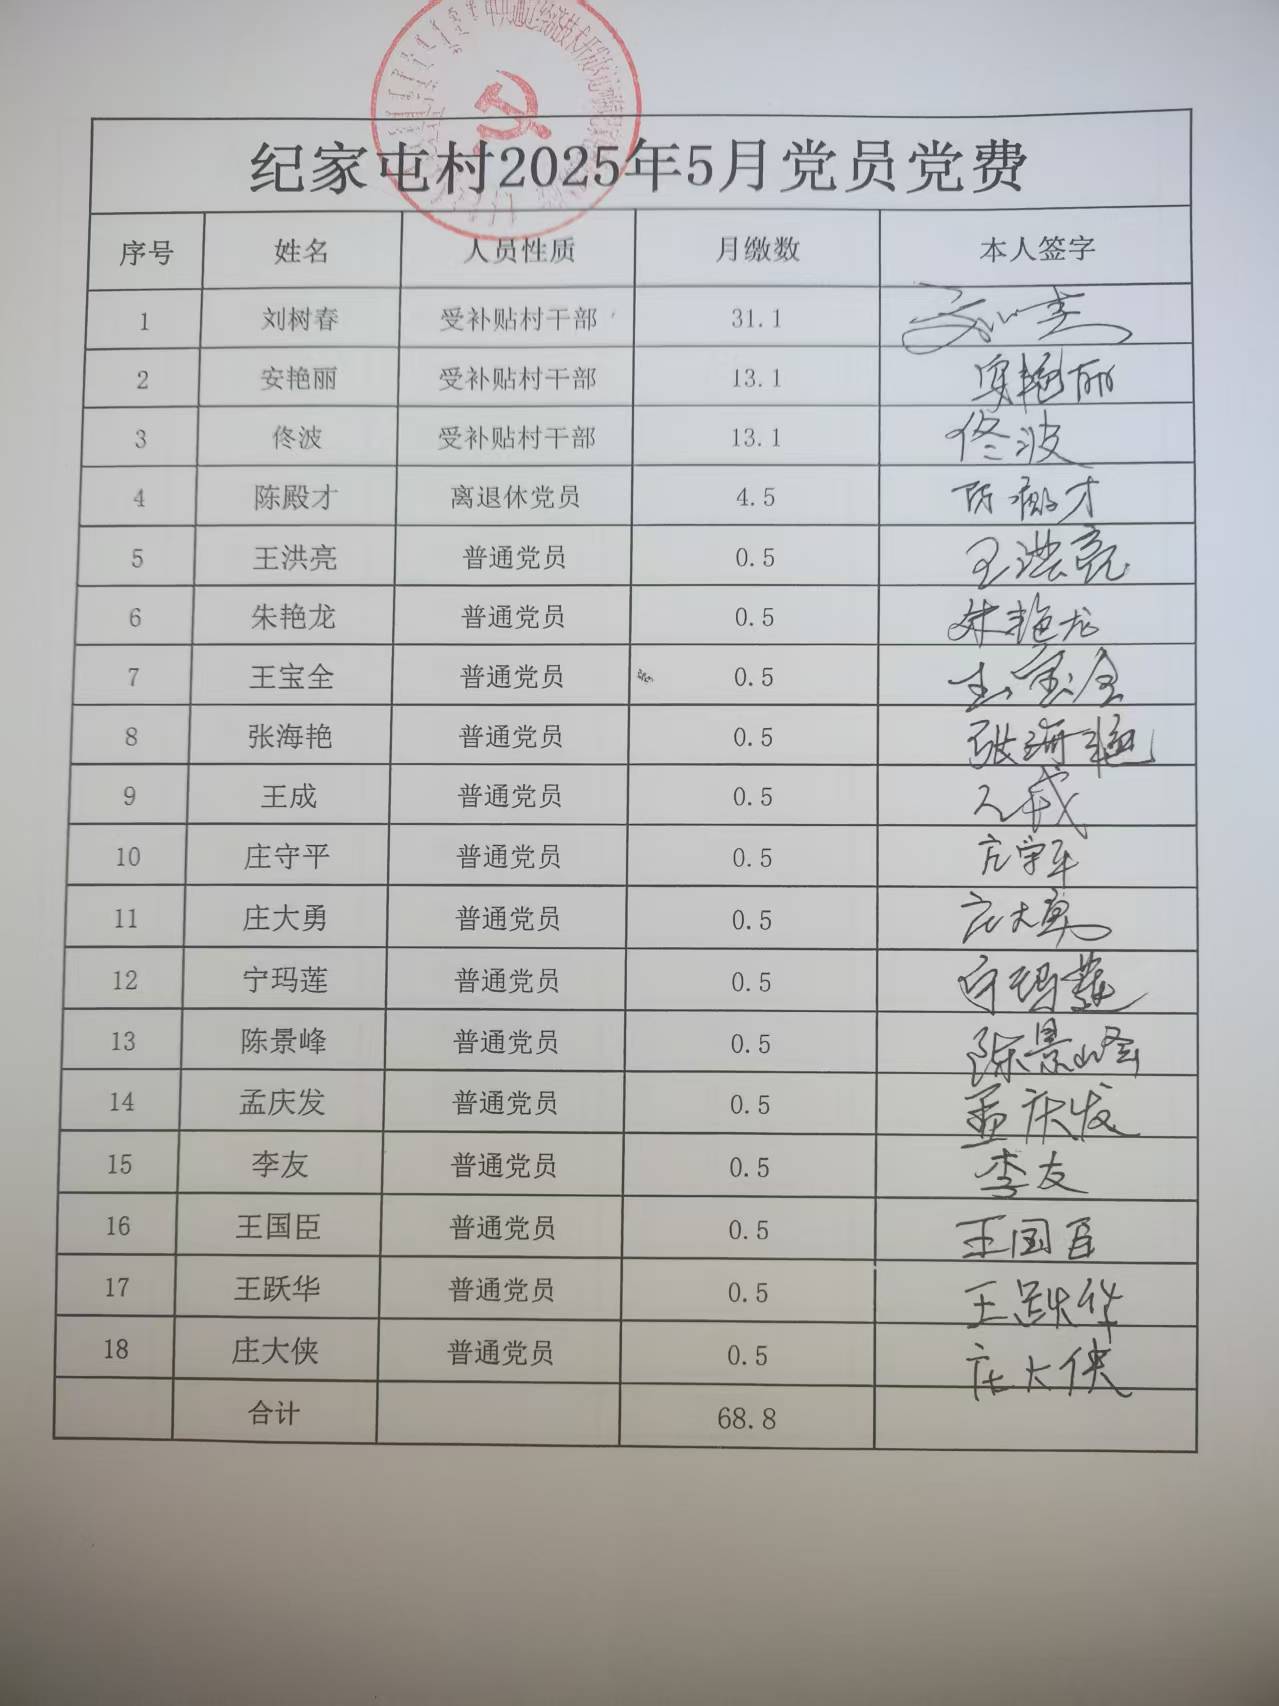 纪家屯村2025年5月党员党费
序号 姓名 人员性质 月缴数 本人签字
1 刘树春 受补贴村干部 31.1
2 安艳丽 受补贴村干部 13.1 安艳丽
3 佟波 受补贴村干部 13.1 佟波
4 陈殿才 离退休党员 4.5 陈殿才
5 王洪亮 普通党员 0.5 王洪亮
6 朱艳龙 普通党员 0.5 朱艳龙
7 王宝全 普通党员 0.5 王宝全
8 张海艳 普通党员 0.5 张海艳
9 王成 普通党员 0.5 王成
10 庄守平 普通党员 0.5
11 庄大勇 普通党员 0.5 庄大勇
12 宁玛莲 普通党员 0.5 宁玛莲
13 陈景峰 普通党员 0.5 陈景峰
14 孟庆发 普通党员 0.5 孟庆发
15 李友 普通党员 0.5 李友
16 王国臣 普通党员 0.5 王国臣
17 王跃华 普通党员 0.5 王跃华
18 庄大侠 普通党员 0.5 庄大侠
合计 68.8